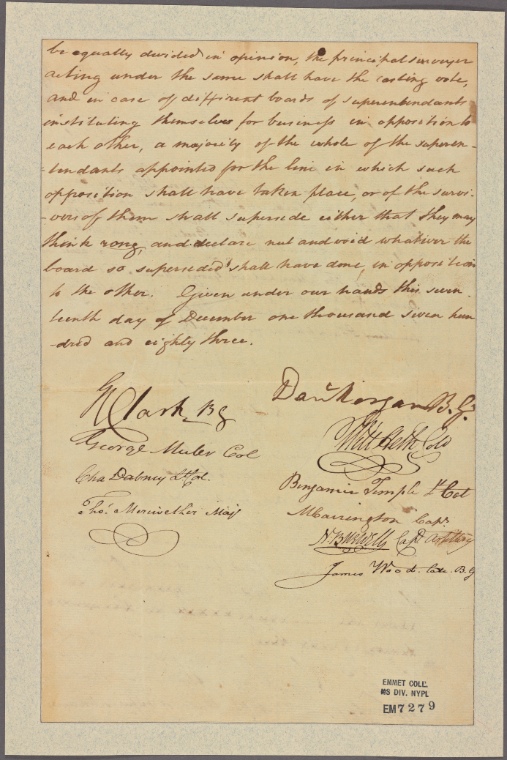 be equally divided in opinion, the principal surveyor
acting under the same shall have the casting vote,
and in case of different boards of superentendants
instituting themselves for business in opposition to
each other, a majority of the whole of the superen-
tendants appointed for the line in which such
opposition shall have taken place, or of the survi-
-vors of them shall supersede either that they may
think rong, and declare nul and void whatever the
board so superseded shall have done, in opposition
to the other. Given under our hands this seven
teenth day of December one thousand seven hun-
-dred and eighty three.
G R Clark BG
Danl Morgan B. G.
George Muter Col
Will Heth Colo
Cha Dabney Lt Col.
Benjamin Temple Lt Col
Thos. Meriwether Maj
M Carrington Capt.
N Burwell Capt Artillery
James Wood late B. G
EMMET COLL.
MS DIV. NYPL
EM 7279